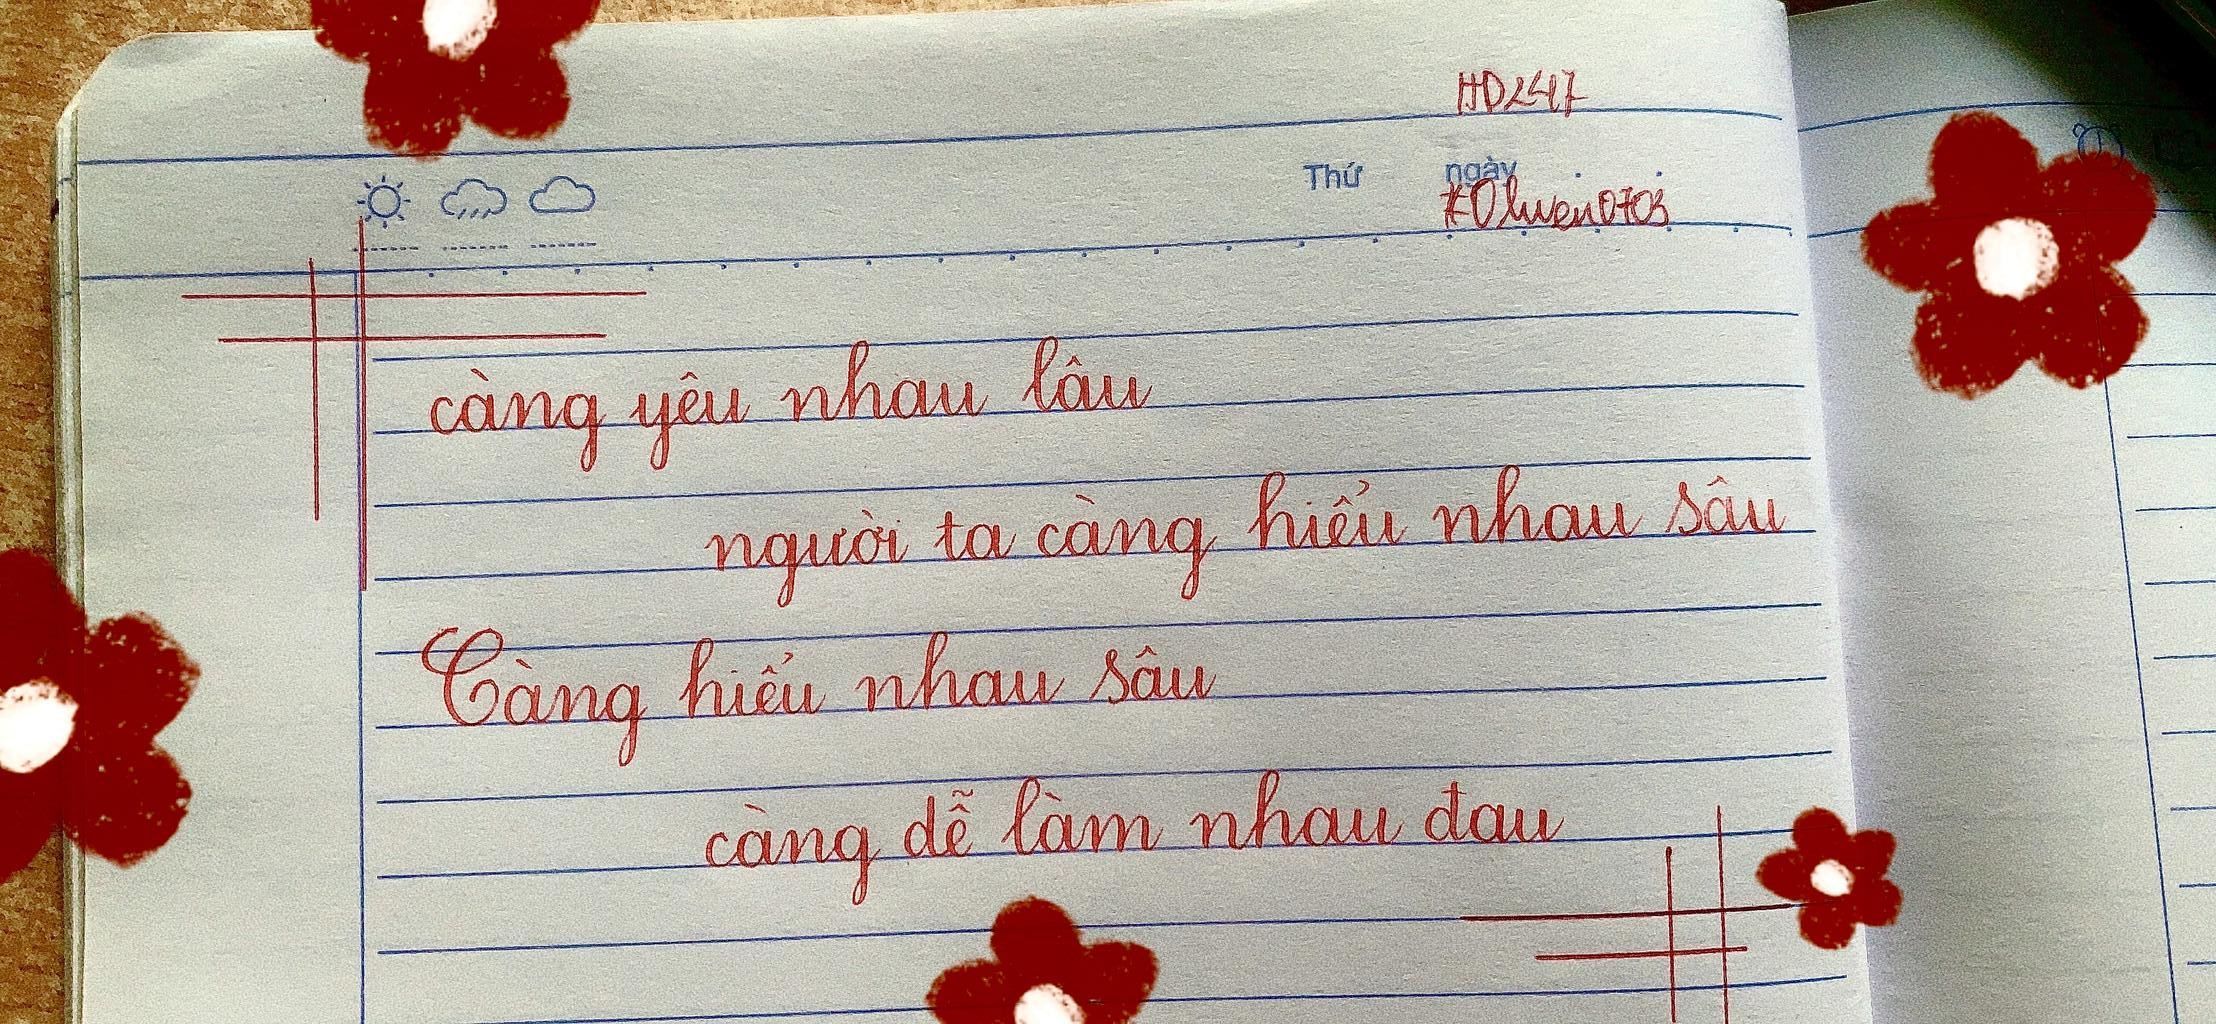 HD247
Thứ ngày
#Olwen0703
càng yêu nhau lâu
người ta càng hiểu nhau sâu
Càng hiểu nhau sâu
càng dễ làm nhau đau